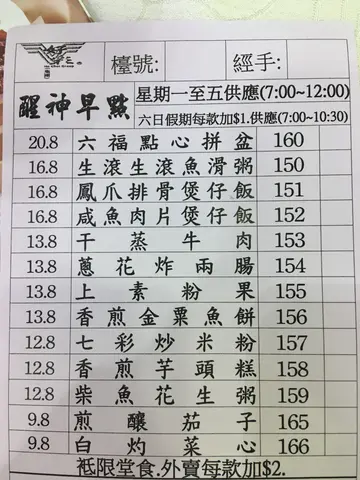 檯號: 經手:
醒神早點 星期一至五供應(7:00~12:00)
六日假期每款加$1.供應(7:00~10:30)
20.8 六福點心拼盆 160
16.8 生滾生滾魚滑粥 150
16.8 鳳爪排骨煲仔飯 151
16.8 咸魚肉片煲仔飯 152
13.8 干蒸牛肉 153
13.8 蔥花炸兩腸 154
13.8 上素粉果 155
13.8 香煎金粟魚餅 156
12.8 七彩炒米粉 157
12.8 香煎芋頭糕 158
12.8 柴魚花生粥 159
9.8 煎釀茄子 165
9.8 白灼菜心 166
袛限堂食.外賣每款加$2.